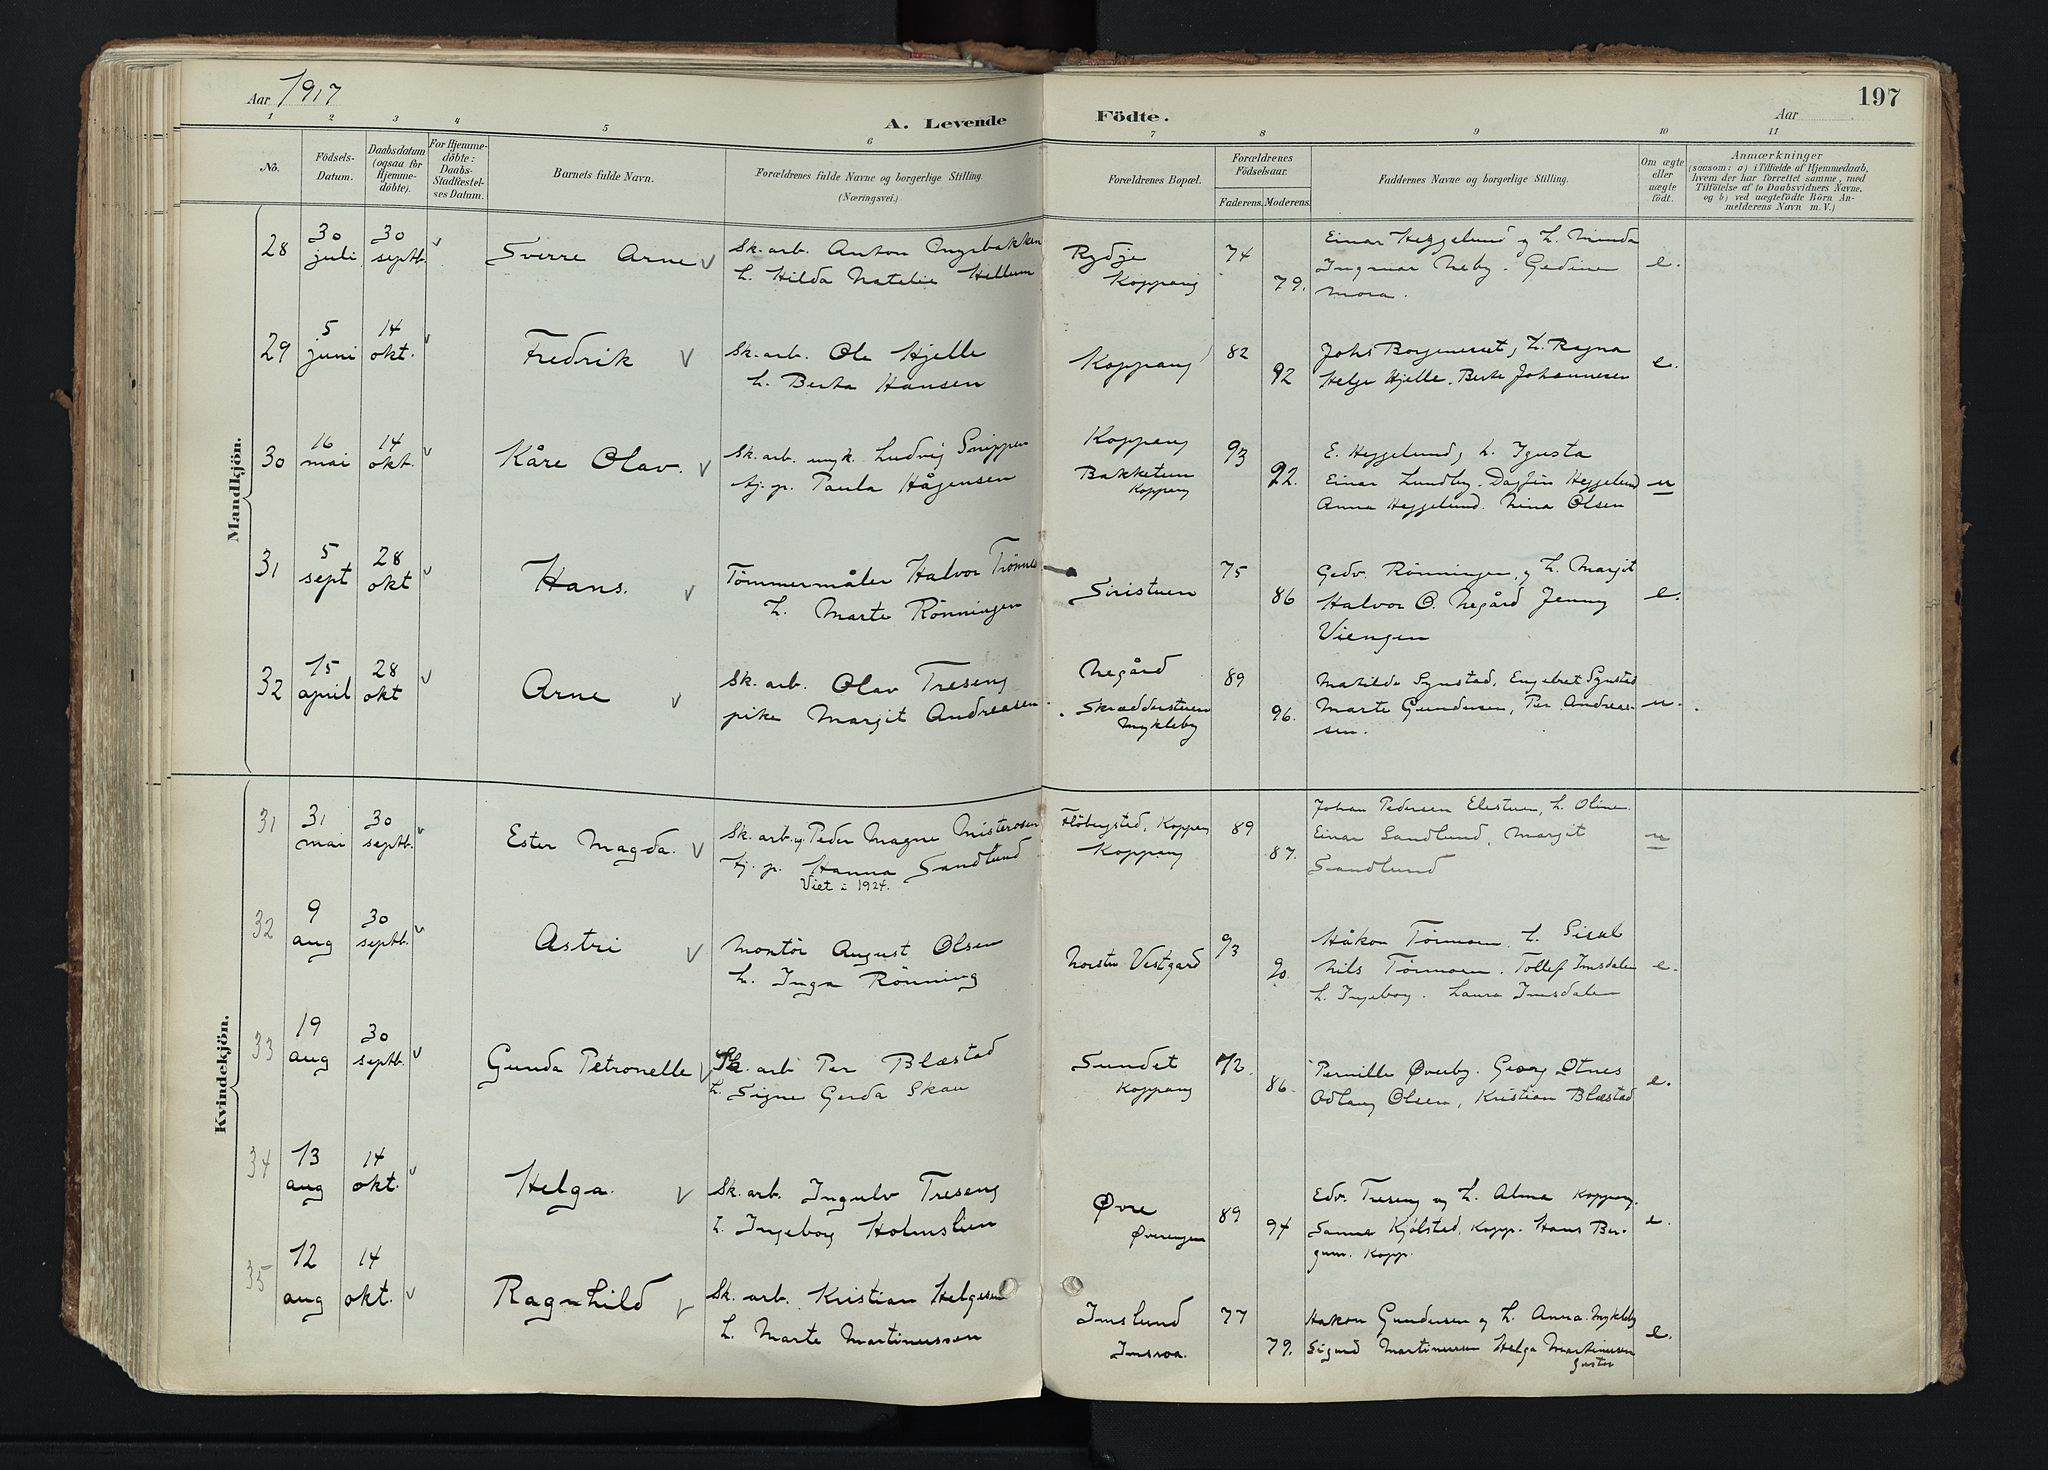 Aar 1917
A. Levende Födte.
Aar
197
1 2 3 4 5 6 7 8 9 10 11
No.
Födsels-
Datum.
Daabsdatum
(ogsaa for
Hjemme-
döbte).
For Hjemme-
döbte:
Daabs-
Stadfæstel-
ses Datum.
Barnets fulde Navn.
Forældrenes fulde Navne og borgerlige Stilling.
(Næringsvei.)
Forældrenes Bopæl.
Forældrenes
Födselsaar.
Faderens. Moderens.
Faddernes Navne og borgerlige Stilling.
Om ægte
eller
uægte
födt.
Anmærkninger
(saasom: a) i Tilfælde af Hjemmedaab,
hvem der har forrettet samme, med
Tilföielse af to Daabsvidners Navne.
og b) ved uægtefödte Börn An-
melderens Navn m. V.)
Mandkjön.
28
30
juli
30
septb.
v
Sverre Arne v
Sk. arb. Anton Engebakken
h. Hilda Natalie Hellum
Rydje
Koppang
74
79.
Einar Heggelund og h. Minda
Ingmar Neby. Gedine
Mora.
e.
29
5
juni
14
okt.
v
Fredrik v
Sk. arb. Ole Hjelle
h. Berta Hansen
Koppang
82
92
Johs Borgeneset, h. Ragna
Helge Hjelle. Berte Johannesen
e.
30
16
mai
14
okt.
v
Kåre Olav. v
Sk. arb. ungk. Ludvig Snippen
tj. p. Paula Hågensen
Koppang
Bakketun
Koppang
93
92.
E. Heggelund, h. Igusta
Einar Lundby. Dagfin Heggelund
Anna Heggelund. Nina Olsen
u
31
5
sept
28
okt
v
Hans. v
Tømmermåler Halvor Trønnes
h. Marte Rönningen
Siristuen
75
86
Gedv. Rönningen, og h. Margit
Halvor O. Negård Jenny
Viengen
e.
32
15
april
28
okt
v
Arne v
Sk. arb. Olav Treseng
pike Margit Andreasen
Negård
Skrædderstuen
Mykleby
89
96.
Matilde Synstad, Engebret Synstad
Marte Gundersen, Per Andreas-
sen.
u.
Kvindekjön.
31
31
mai
30
septb.
v
Ester Magda. v
Sk. arb. og Peder Magne Misterosen
tj. p. Hanna Sandlund
Viet i 1924.
Flöbergsted, Koppang
Koppang
89
87.
Johan Pedersen Elestuen, h. Oline.
Einar Sandlund, Margit
Sandlund
u
32
9
aug
30
septb.
v
Astri v
Montör August Olsen
h. Inga Rönning
Norstu Vestgard
93
90.
Håkon Tørmoen h. Sisel
Nils Tørmoen. Tollef Imsdalen
h. Ingeborg. Laura Imsdalen
e.
33
19
aug
30
septb.
v
Gunda Petronelle v
Sk. arb Per Blæstad
h. Signe Gerda Skau
Sundet
Koppang
72.
86.
Pernille Øverby. Georg Otnes
Odlaug Olsen, Kristian Blæstad
e.
34
13
aug
14
okt.
v
Helga. v
Sk. arb. Ingulv Treseng
h. Ingeborg Holmslien
Øvre
Øverengen
89
94
Edv. Treseng og h. Alma Koppang.
Sanna Kjölsted, Kopp. Hans Ber-
gum. Kopp.
e.
35
12
aug
14
okt.
v
Ragnhild v
Sk. arb. Kristian Helgesen
h. Marte Martinussen
Imslund
Imsroa.
77
79.
Hakon Gundersen og h. Anna. Mykleby
Sigurd Martinussen Helga Martinussen
e.